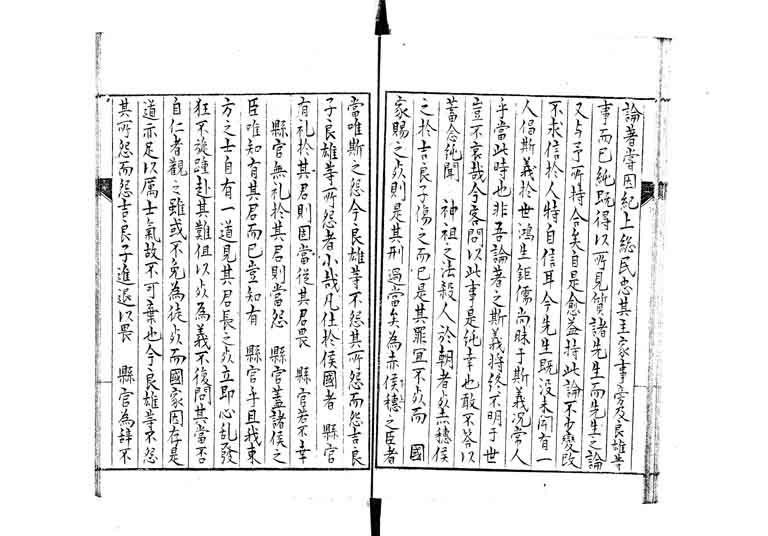 論著嘗因紀上総民忠其主家事旁及良雄等
事而已純既得以所見質諸先生而先生之論
又与予所持合矣自是愈益持此論不少變改
不求信於人特自信耳今先生既没未聞有一
人倡斯義於世鴻生鉅儒尚昧于斯義况常人
乎當此時也非吾論著之斯義将終不明于世
豈不哀哉今客問以此事是純幸也敢不答以
蓄念純聞 神祖之法殺人於朝者死赤穗侯
之於吉良子傷之而已是其罪宜不死而 國
家賜之死則是其刑過當矣為赤侯穗之臣者
當唯斯之怨今良雄等不怨其所怨而怨吉良
子良雄等所怨者小哉凡仕於侯國者 縣官
有礼於其君則固當從其君畏 縣官若不幸
縣官無礼於其君則當怨 縣官蓋諸侯之
臣唯知有其君而已豈知有 縣官乎且我東
方之士自有一道見其君長之死立即心乱發
狂不旋踵赴其難但以死為義不復問其當否
自仁者觀之雖或不免為徒死而國家因存是
道亦足以厲士氣故不可棄也今良雄等不怨
其所怨而怨吉良子進退以畏 縣官為辞不